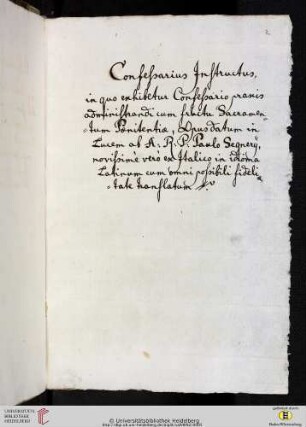 2
Confessarius Instructus,
in quo exhibetur Confessario praxis
administrandi cum fructu Sacramen-
-tum Pœnitentiæ, Opus datum in
Lucem ab A: R. P. Paulo Segnery,
novissimè vero ex Italico in idioma
Latinum cum omni possibili fideli-
-tate translatum
UNIVERSITÄTS-
BIBLIOTHEK
HEIDELBERG
© Universitätsbibliothek Heidelberg
gefördert durch
Baden-Württemberg